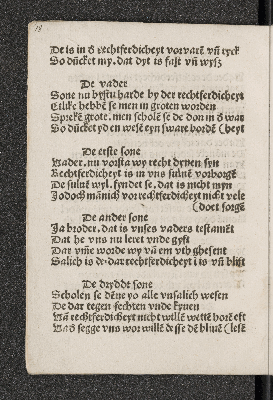 De is in d̕ rechtferdicheyt vorvarē vn̄ ryck
So dücket my. dat dyt is falſt vn̄ wyſz
De vader
Sone nu byſtu harde by der rechtferdicheyt
Etlike hebbē ſe men in groten worden
Spreke grote. men ſcholē ſe de don in d̕ war
So dücket yd en weſē eyn ſwart bordē (heyt
De erſte ſone
Vader, nu vorſta wy recht dynen ſyn
Rechtferdicheyt is in vns ſuluē vorborgē
De ſulue wyl. fyndet ſe, dat is nicht myn
Jodoch mānich vor rechtferdicheyt nicht vele
(doet ſorgē
De ander ſone
Ja broder, dat is vnſes vaders teſtamēt
Dat he vns nu leret vnde gyft
Dat vm̄e worde wy vā em vth gheſent
Salich is de dar rechtferdicheyt is vn̄ blift
De dryddē ſone
Scholen ſe dēne yo alle vnſalich weſen
De dar tegen fechten vnde kyuen
Vā rechtferdicheyt nicht willē wetē horē eft
Vad̕ ſegge vns wor willē deſſe dē bliuē (leſē